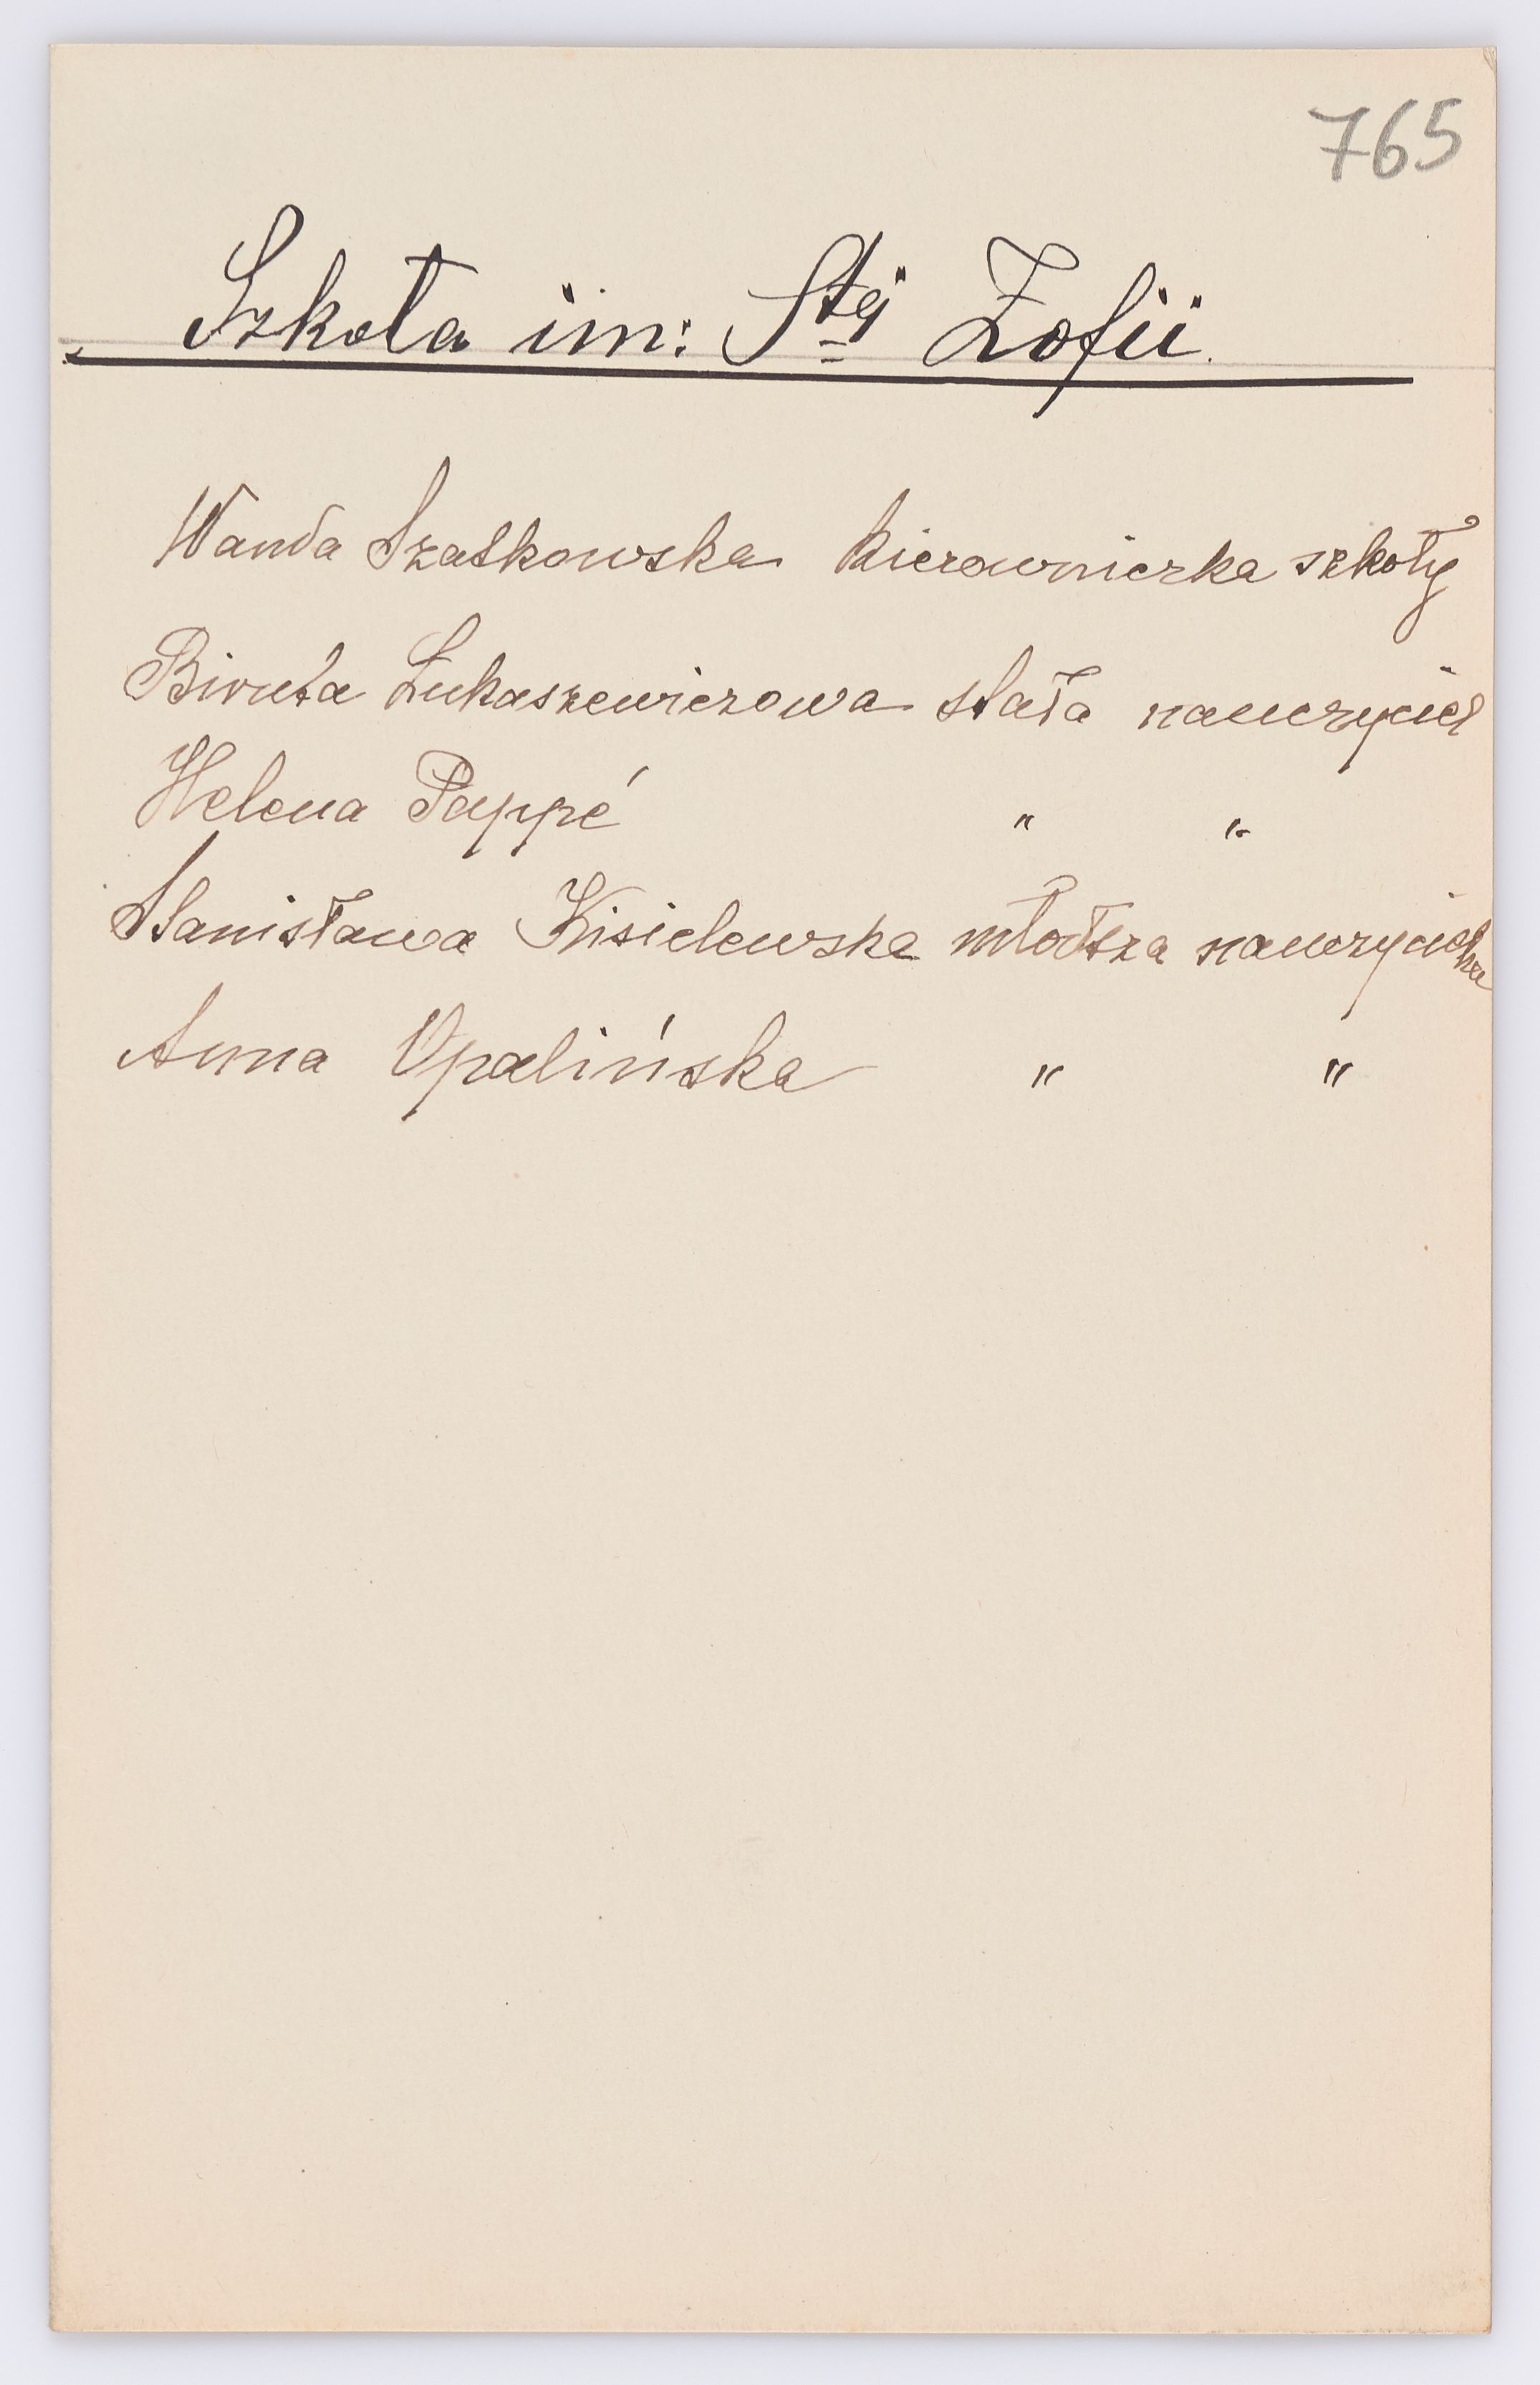 765
Szkoła im: Stej Zofii.
Wanda Szatkowska kierowniczka szkoły
Biruta Łukaszewiczowa stała nauczyciel
Helena Pappé " "
Stanisława Kisielewska młodsza nauczycielka
Anna Opalińska " "